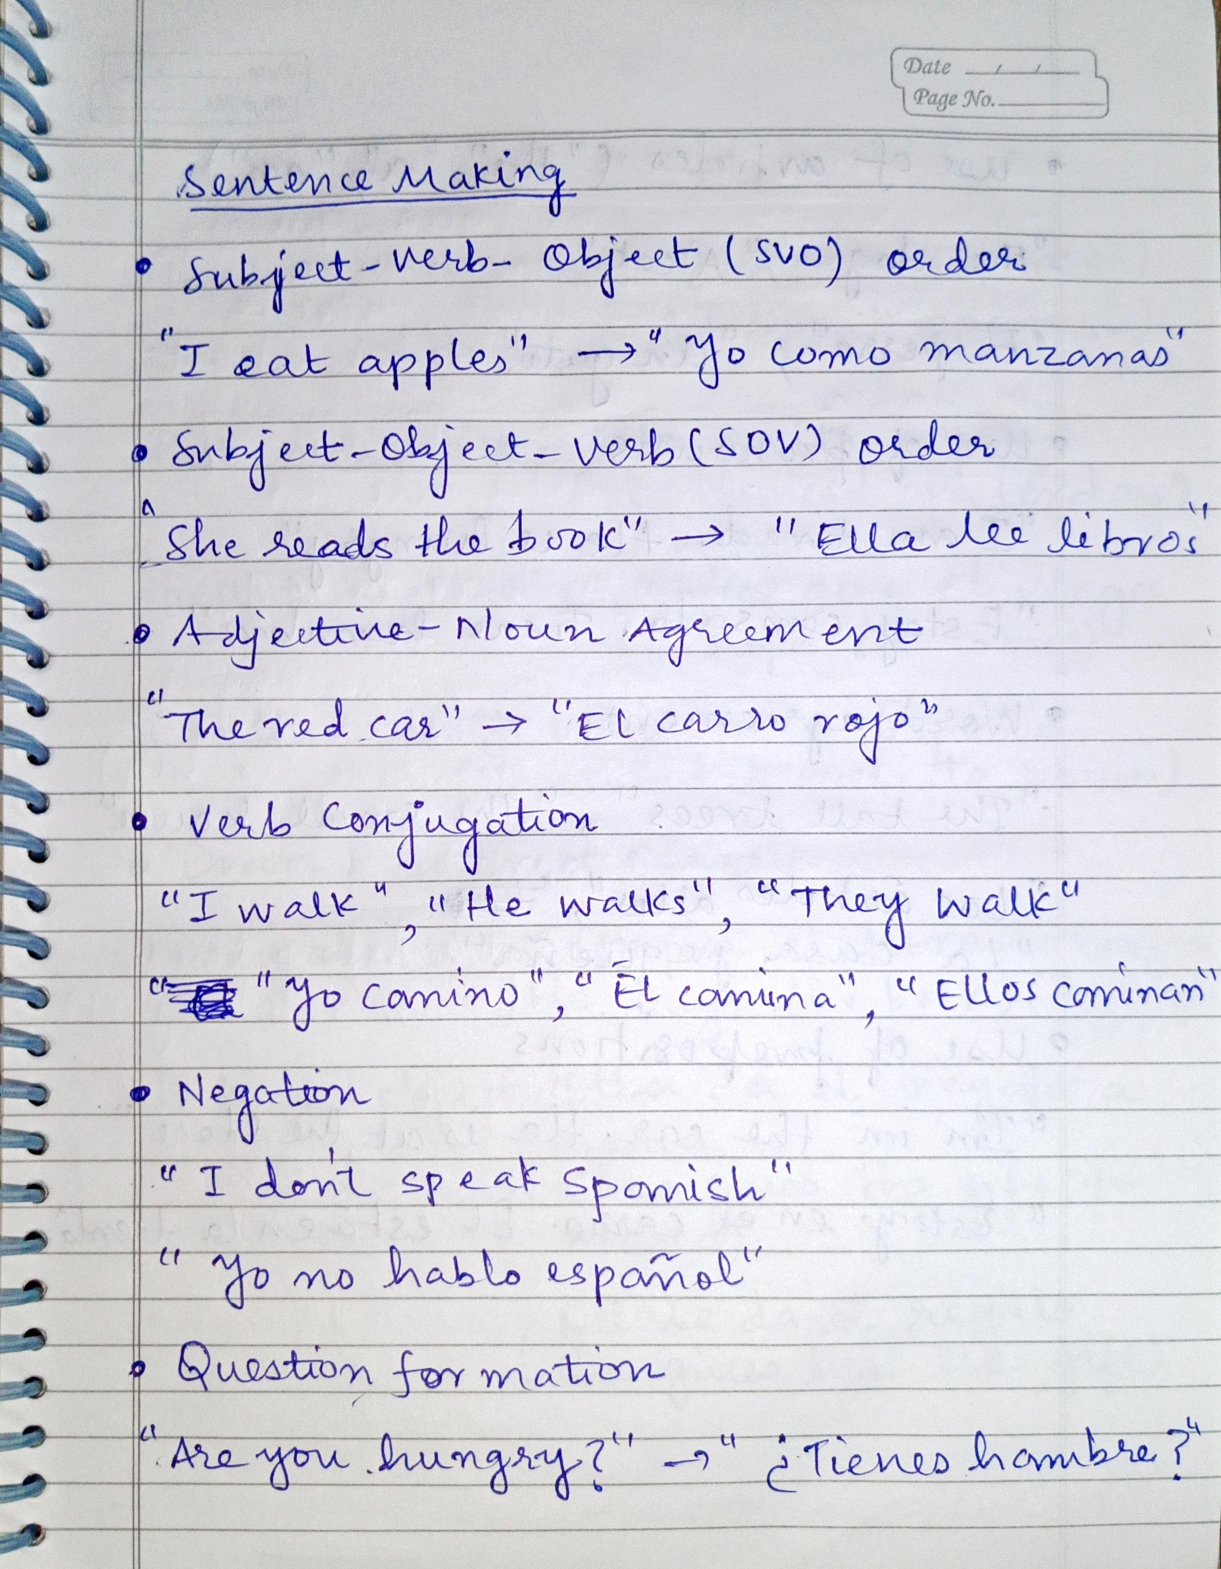 Date __/__/__
Page No.
Sentence Making
• Subject-Verb-Object (SVO) order
"I eat apples" → "Yo como manzanas"
• Subject-Object-Verb (SOV) order
"She reads the book" → "Ella lee libros"
• Adjective-Noun Agreement
"The red car" → "El carro rojo"
• Verb Conjugation
"I walk", "He walks", "They walk"
"Yo camino", "Él camina", "Ellos caminan"
• Negation
"I don't speak Spanish"
"Yo no hablo español"
• Question formation
"Are you hungry?" → "¿Tienes hambre?"